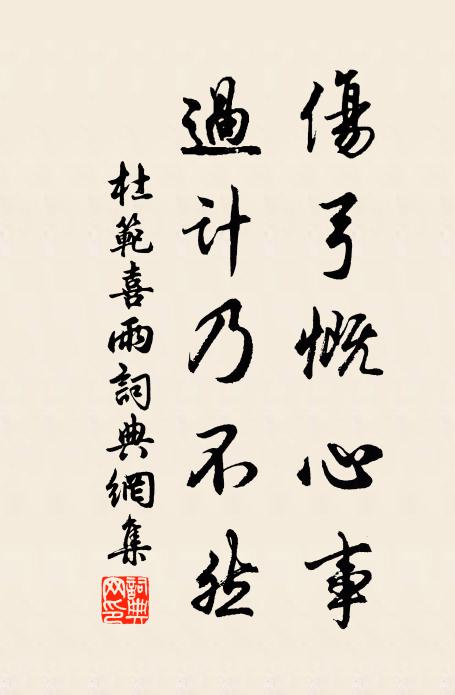 傷弓慨心事
過计乃不然
杜範喜雨詞典網集
詞典
网印